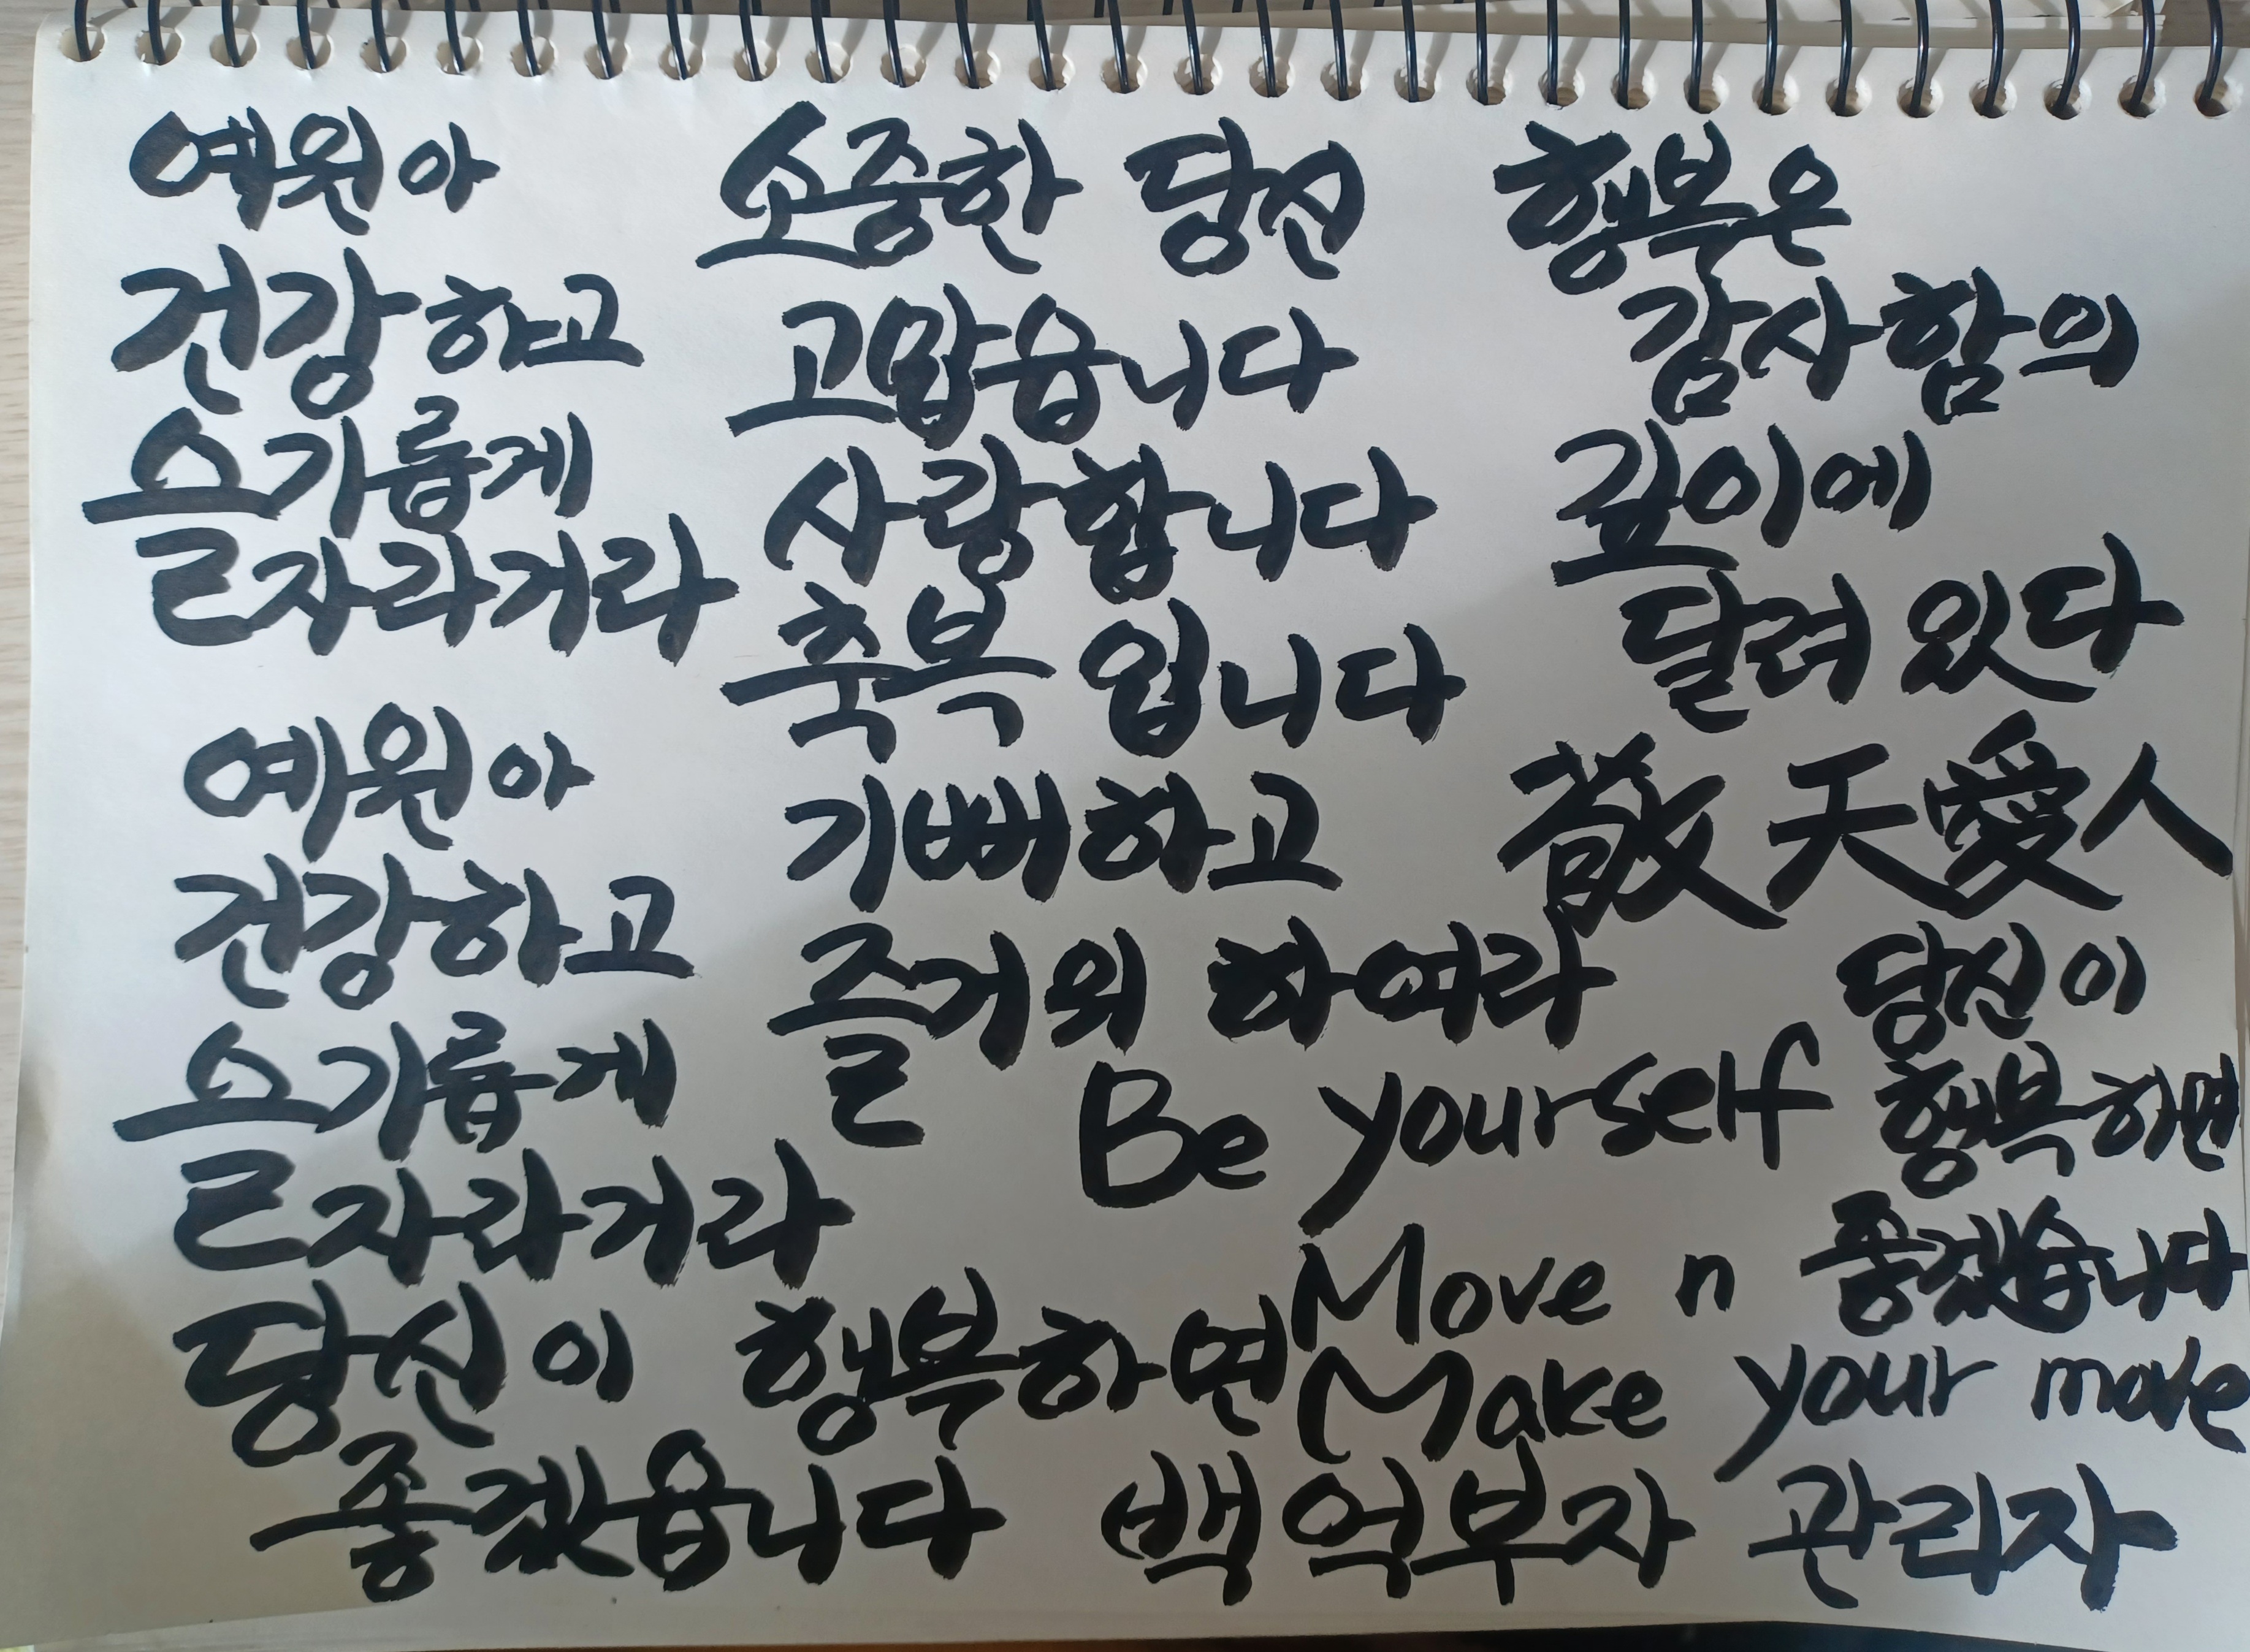 예원아
건강하고
슬기롭게
자라거라
예원아
건강하고
슬기롭게
자라거라
당신이 행복하면
좋겠습니다
소중한 당신
고맙습니다
사랑합니다
축복 입니다
기뻐하고
즐거워 하여라
Be yourself
Move n
Make your move
백억부자 관리자
행복은
감사함의
깊이에
달려 있다
敬天愛人
당신이
행복하면
좋겠습니다